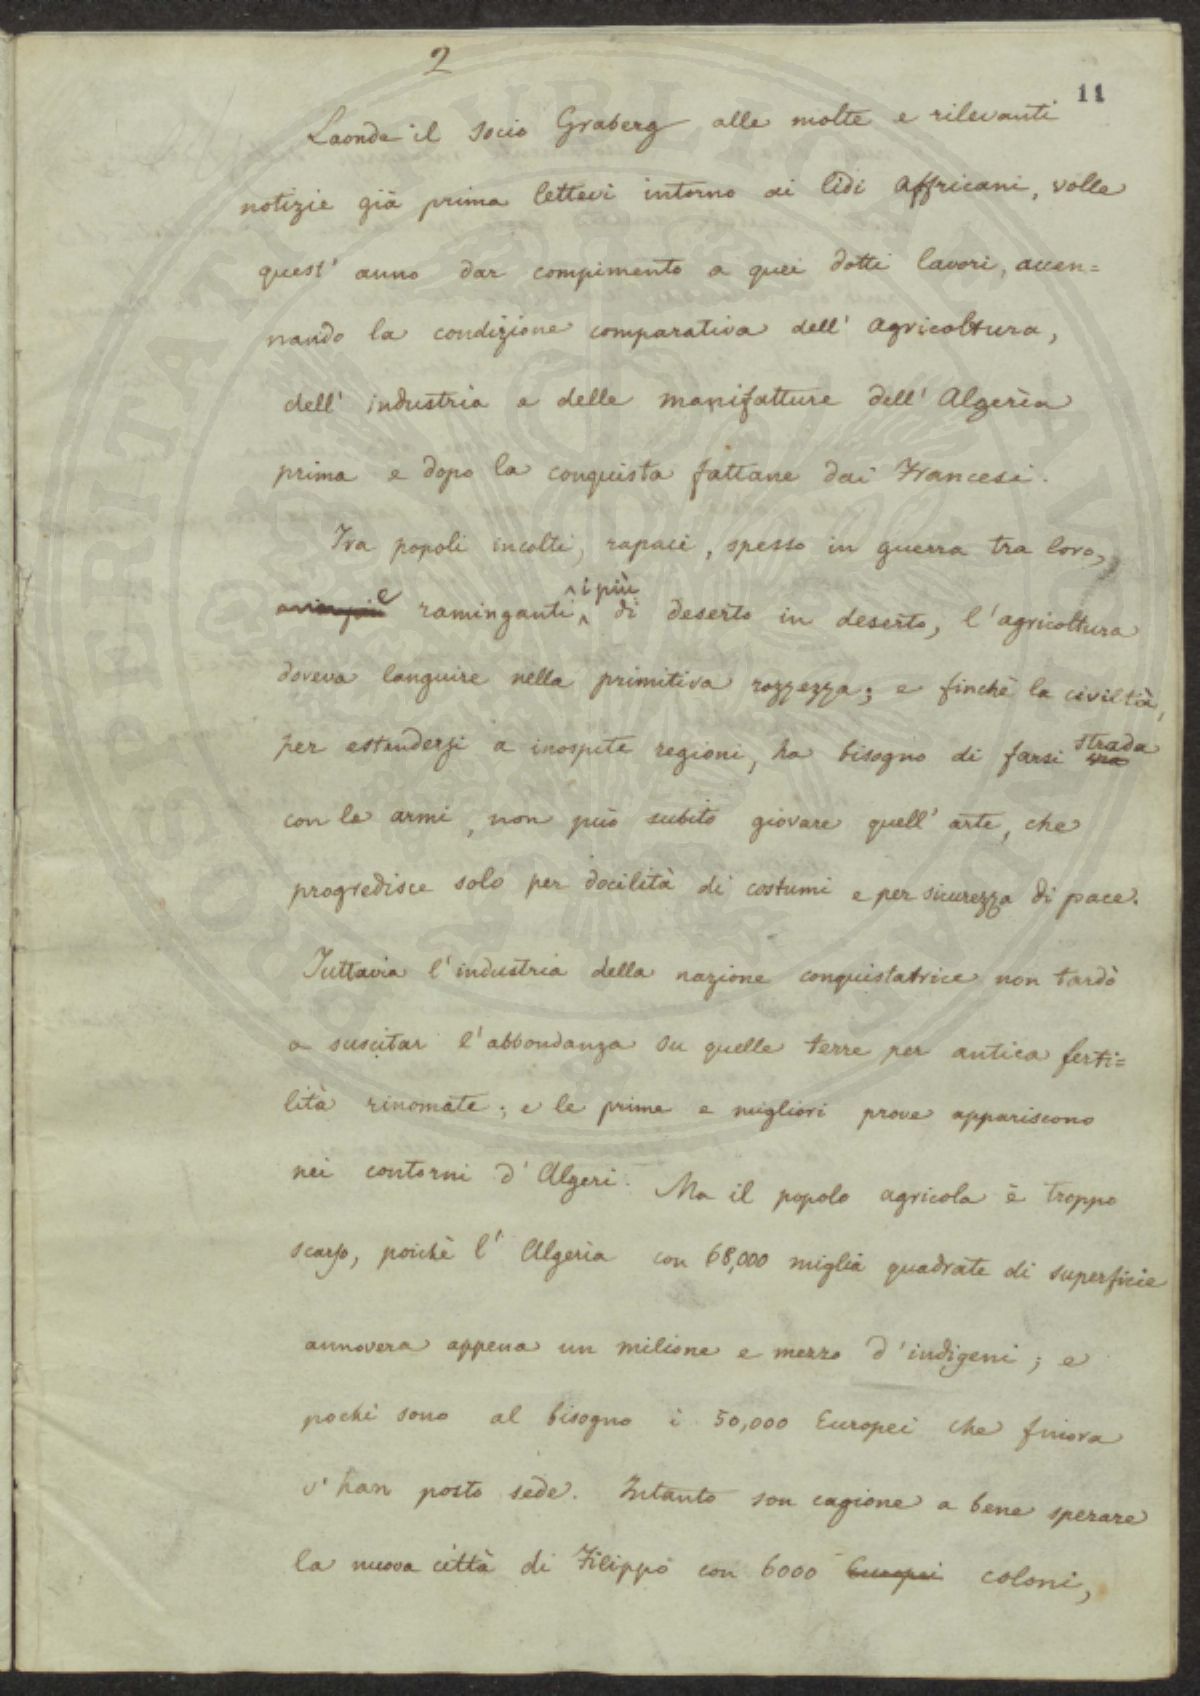 2
11
Laonde il socio Graberg alle molte e rilevanti
notizie già prima lettevi intorno ai lidi affricani, volle
quest' anno dar compimento a quei dotti lavori, accen=
nando la condizione comparativa dell' agricoltura,
dell' industria e delle manifatture dell' Algerìa
prima e dopo la conquista fattane dai Francesi.
Tra popoli incolti, rapaci, spesso in guerra tra loro,
e raminganti i più di deserto in deserto, l'agricoltura
doveva languire nella primitiva rozzezza; e finchè la civiltà,
per estendersi a inospite regioni, ha bisogno di farsi strada
con le armi, non può subito giovare quell' arte, che
progredisce solo per docilità di costumi e per sicurezza di pace.
Tuttavia l'industria della nazione conquistatrice non tardò
a suscitar l'abbondanza su quelle terre per antica ferti=
lità rinomate; e le prime e migliori prove appariscono
nei contorni d'Algeri. Ma il popolo agricola è troppo
scarso, poichè l' Algerìa con 68,000 miglia quadrate di superficie
annovera appena un milione e mezzo d'indigeni; e
pochi sono al bisogno i 50,000 Europei che finora
v' han posto sede. Intanto son cagione a bene sperare
la nuova città di Filippo con 6000 Europei coloni,
PROSPERITATI PUBLICAE AUGENDAE